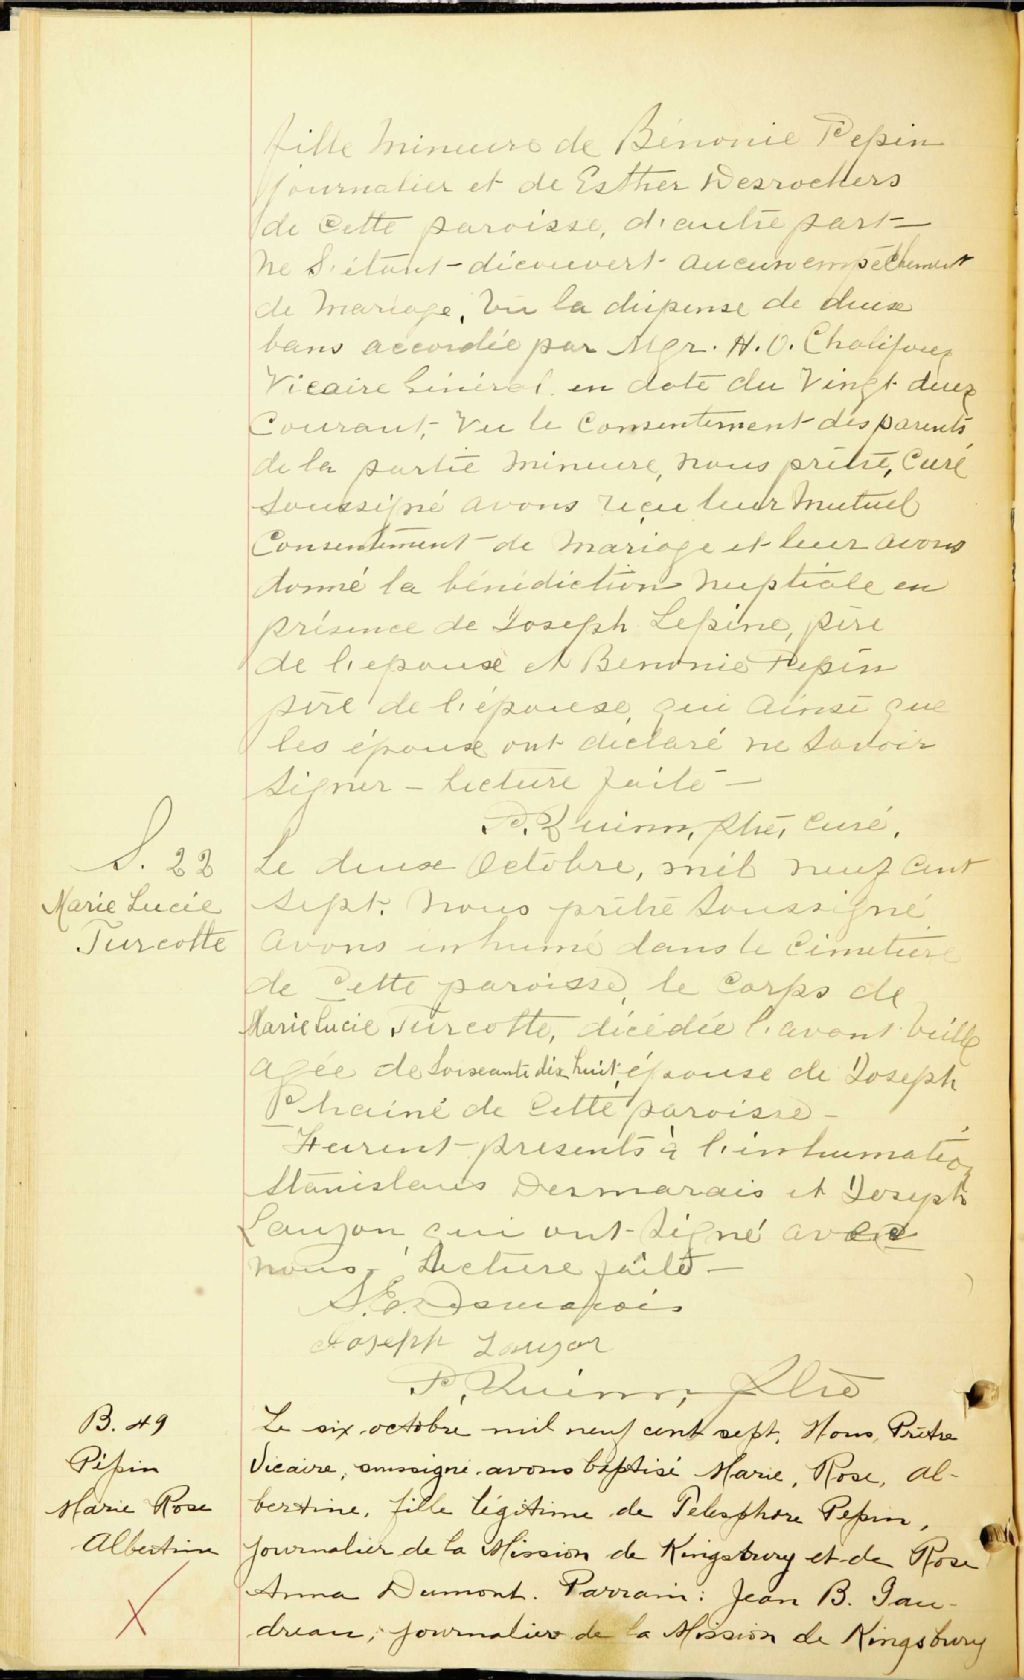 fille mineure de Bénonie Pepin
journalier et de Esther Desrochers
de Cette paroisse, d'autre part –
Ne s'étant découvert aucun empêchement
de Mariage, Vu la dispense de deux
bans accordée par Mgr. H. O. Chalifoux
Vicaire Général en date du Vingt deux
Courant, Vu le Consentement des parents
de la partie mineure, nous prêtre, Curé
soussigné avons reçu leur Mutuel
Consentement de Mariage et leur avons
donné la bénédiction Nuptiale en
présence de Joseph Lepine, père
de l'epoux et Benonie Pepin
père de l'épouse, qui ainsi que
les époux ont déclaré ne Savoir
signer – Lecture faite –
P. Quinn, ptre, curé.
S. 22
Marie Lucie
Turcotte
Le deux Octobre, mil neuf cent
sept. Nous prêtre soussigné
avons inhumé dans le Cimetière
de Cette paroisse, le Corps de
Marie Lucie Turcotte, décédée l'avant veille
agée de Soixante dix huit, épouse de Joseph
Phainé de Cette paroisse –
Furent presents à l'inhumation
Stanislaus Desmarais et Joseph
Lauzon qui ont signé avec
nous, Lecture faite –
S. E. Desmarais
Joseph Lauzon
P. Quinn, Ptre
B. 49
Pépin
Marie Rose
Albertine
Le six octobre mil neuf cent sept, Nous, Prêtre
Vicaire, soussigné avons baptisé Marie, Rose, Al-
bertine, fille légitime de Telesphore Pepin,
journalier de la Mission de Kingsbury et de Rose
Anna Dumont. Parrain : Jean B. Gau-
dreau, journalier de la Mission de Kingsbury